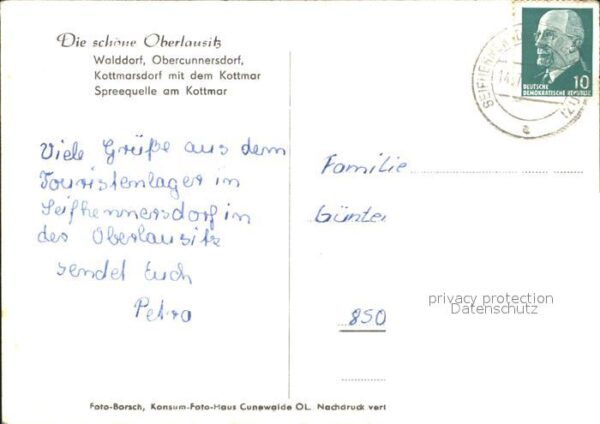 Die schöne Oberlausitz
Walddorf, Obercunnersdorf,
Kottmarsdorf mit dem Kottmar
Spreequelle am Kottmar
10
DEUTSCHE
DEMOKRATISCHE REPUBLIK
Viele Grüße aus dem
Touristenlager in
Seifhennersdorf in
der Oberlausitz
sendet Euch
Petra
Familie
Günter
850
privacy protection
Datenschutz
Foto-Borsch, Konsum-Foto-Haus Cunewalde OL. Nachdruck verl